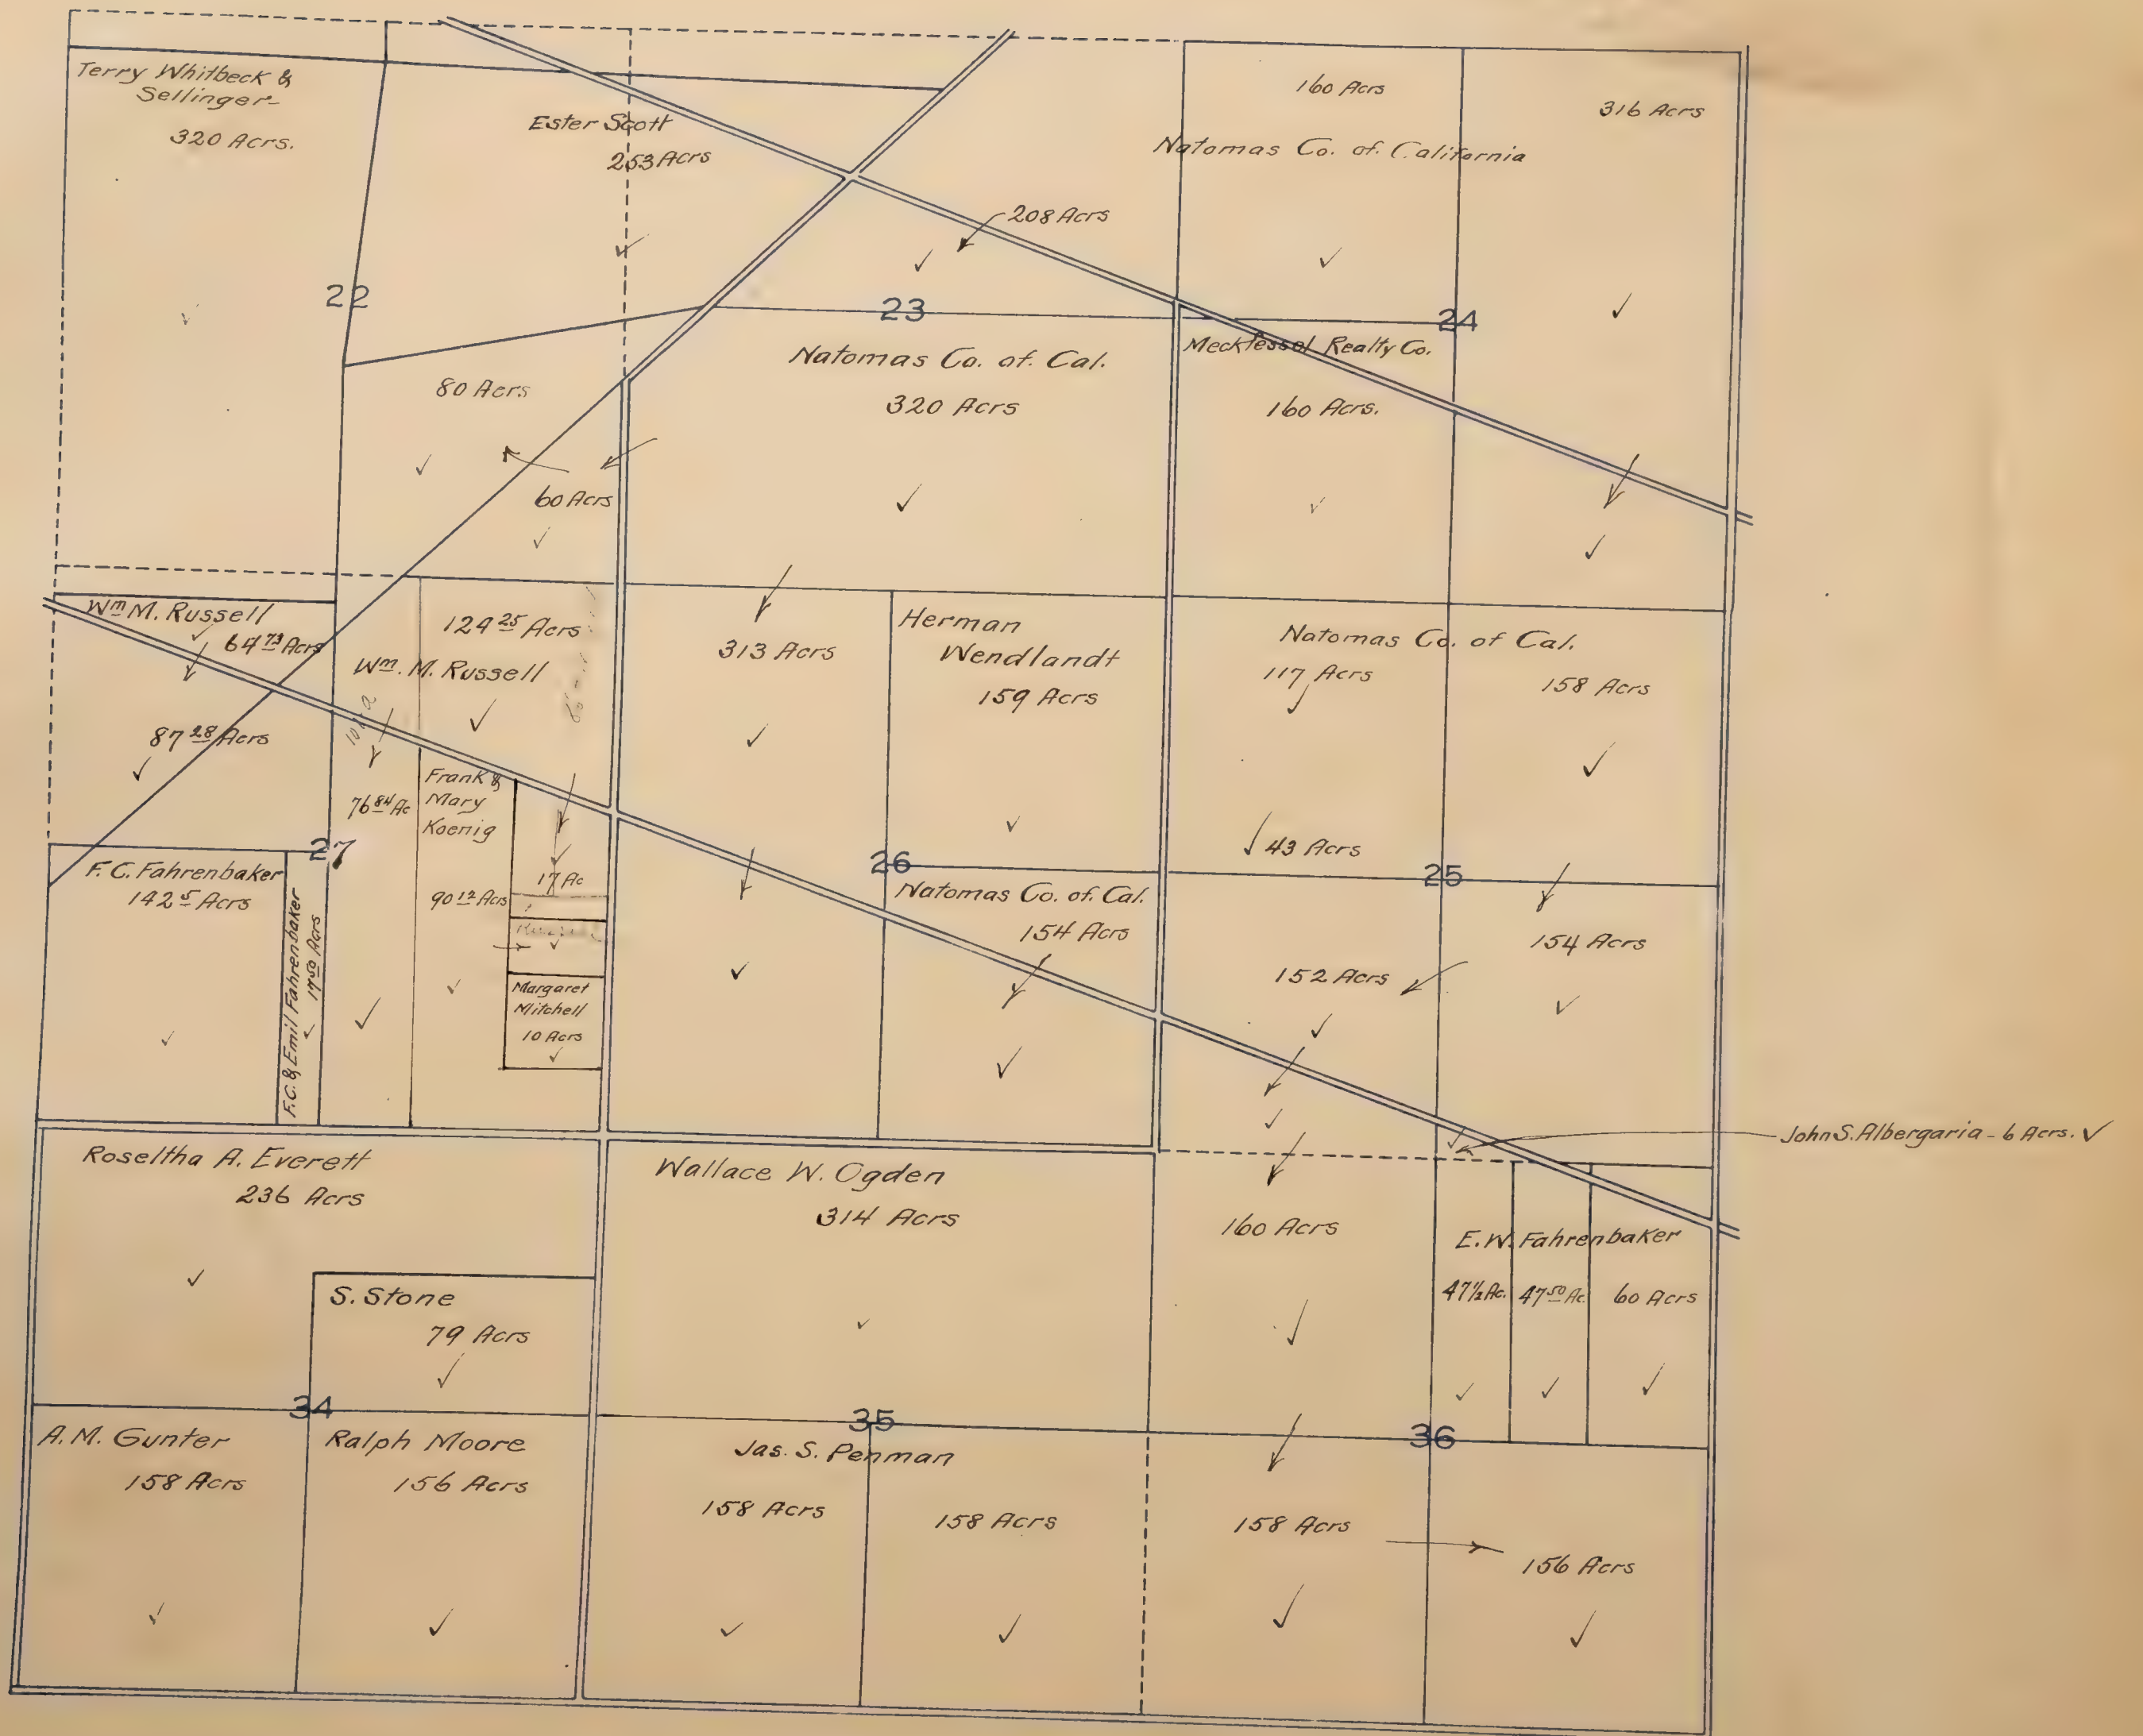 Terry Whitbeck &
Sellinger-
320 Acrs.
Ester Scott
253 Acrs
208 Acrs
160 Acrs
316 Acrs
Natomas Co. of. California
22
23
24
80 Acrs
60 Acrs
Natomas Co. of. Cal.
320 Acrs
Realty Co.
160 Acrs.
Wm M. Russell
64 73 Acrs
124 25 Acrs
Wm. M. Russell
87 28 Acrs
313 Acrs
Herman
Wendlandt
159 Acrs
Natomas Co. of Cal.
117 Acrs
158 Acrs
43 Acrs
76 84 Ac
Frank &
Mary
Koenig
90 12 Acrs
17 Ac
27
26
25
F. C. Fahrenbaker
142 5 Acrs
F.C. & Emil Fahrenbaker
17 50 Acrs
Margaret
Mitchell
10 Acrs
Natomas Co. of. Cal.
154 Acrs
152 Acrs
154 Acrs
John S. Albergaria - 6 Acrs.
Roseltha A. Everett
236 Acrs
S. Stone
79 Acrs
Wallace W. Ogden
314 Acrs
160 Acrs
E. W. Fahrenbaker
47 1/2 Ac.
47 50 Ac.
60 Acrs
34
35
36
A. M. Gunter
158 Acrs
Ralph Moore
156 Acrs
Jas. S. Penman
158 Acrs
158 Acrs
158 Acrs
156 Acrs